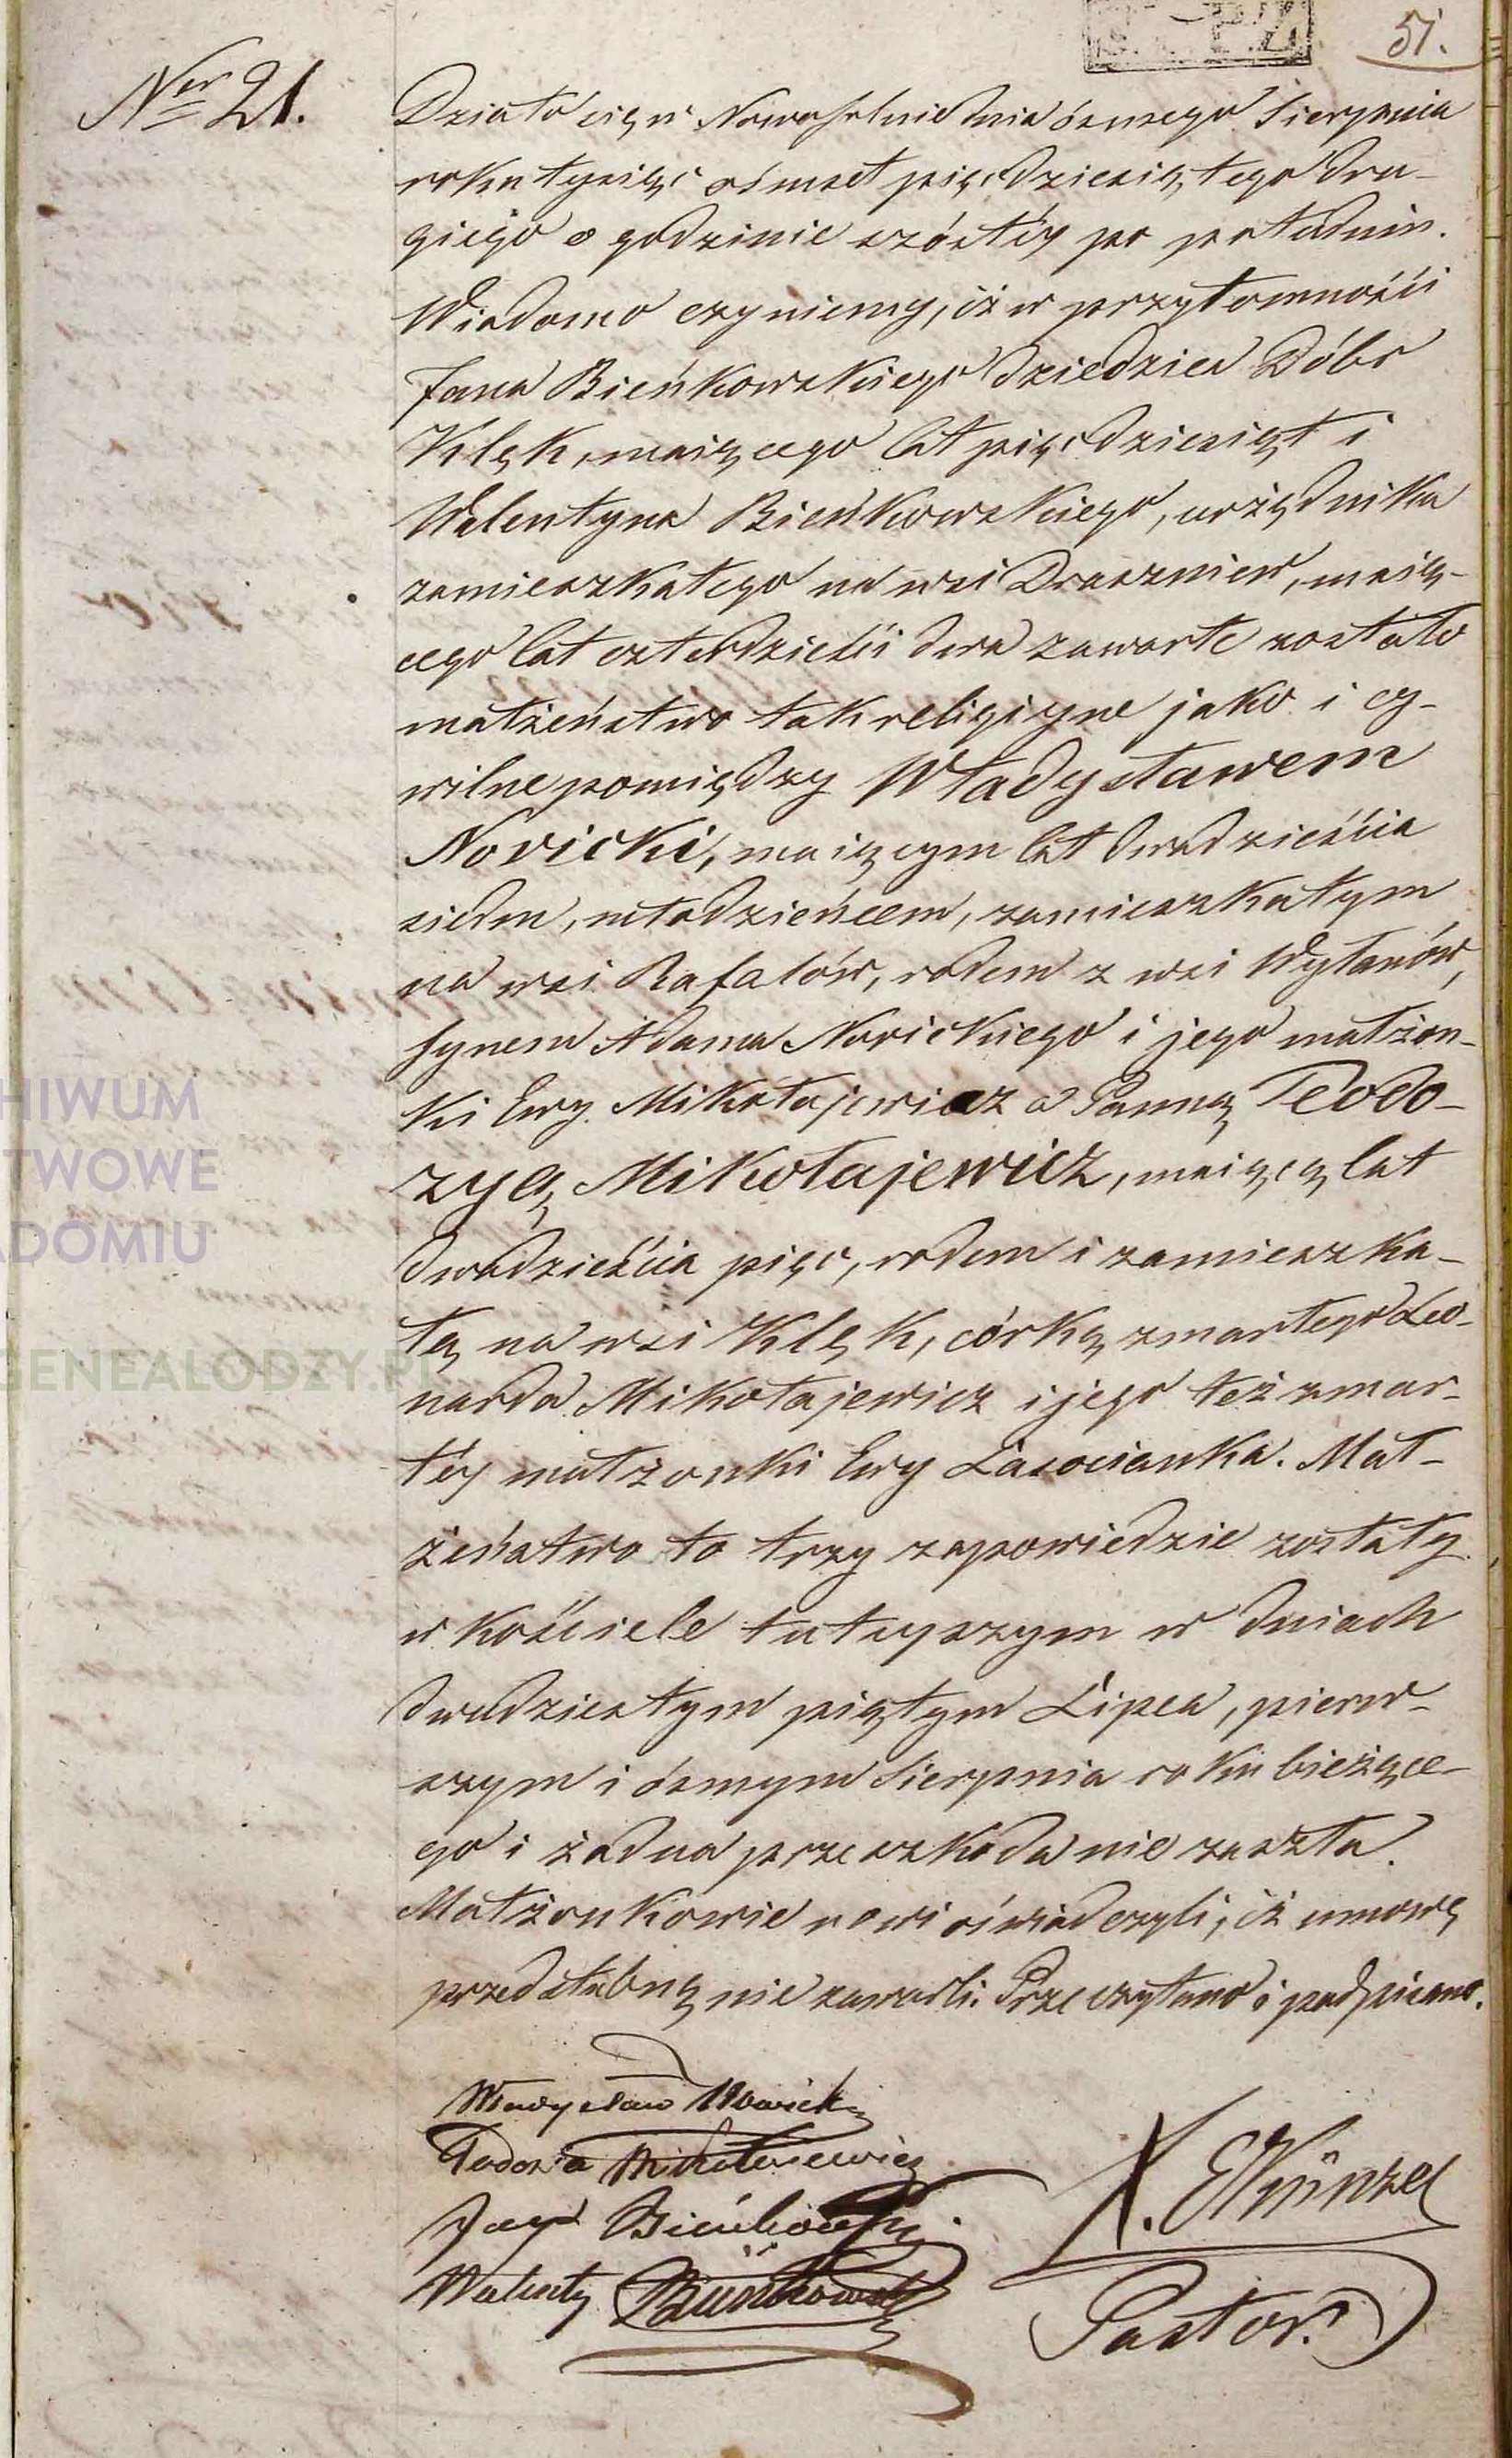 51.
Ner 21.
Działo się w Nowosolnie dnia ósmego Sierpnia
roku tysiąc ośmset pięćdziesiątego dru-
giego o godzinie szóstéy po południu.
Wiadomo czyniemy, iż w przytomności
Jana Bieńkowskiego dziedzica Dóbr
Klęk, maiącego lat pięćdziesiąt i
Walentyna Bieńkowskiego, urzędnika
zamieszkałego na wsi Draszniew, maią-
cego lat czterdzieści dwa zawarte zostało
małżeństwo tak religijne jako i cy-
wilne pomiędzy Władysławem
Novicki, maiącym lat dwadzieścia
siedm, młodzieńcem, zamieszkałym
na wsi Rafałów, rodem z wsi Wytanów,
synem Adama Novickiego i jego małżon-
ki Ewy Mikołajewicz a Panną Teodo-
zyą Mikołajewicz, maiącą lat
dwadzieścia pięć, rodem i zamieszka-
łą na wsi Klęk, córką zmarłego Leo-
narda Mikołajewicz i jego też zmar-
łéy małżonki Ewy Lasocianka. Mał-
żeństwo to trzy zapowiedzie zostały
w kościele tuteyszym w dniach
dwudziestym piątym Lipca, pierw-
szym i ósmym Sierpnia roku bieżące-
ego i żadna przeszkoda nie zaszła.
Małżonkowie nowi oświadczyli, iż umowę
przedślubną nie zawarli. Przeczytano i podpisano.
Władysław Nowicki
Teodozia Mikołaiewicz
Jan Bieńkowski
Walenty Bieńkowski
X. E Künzel
Pastor.
HIWUM
TWOWE
ADOMIU
GENEALODZY.PL